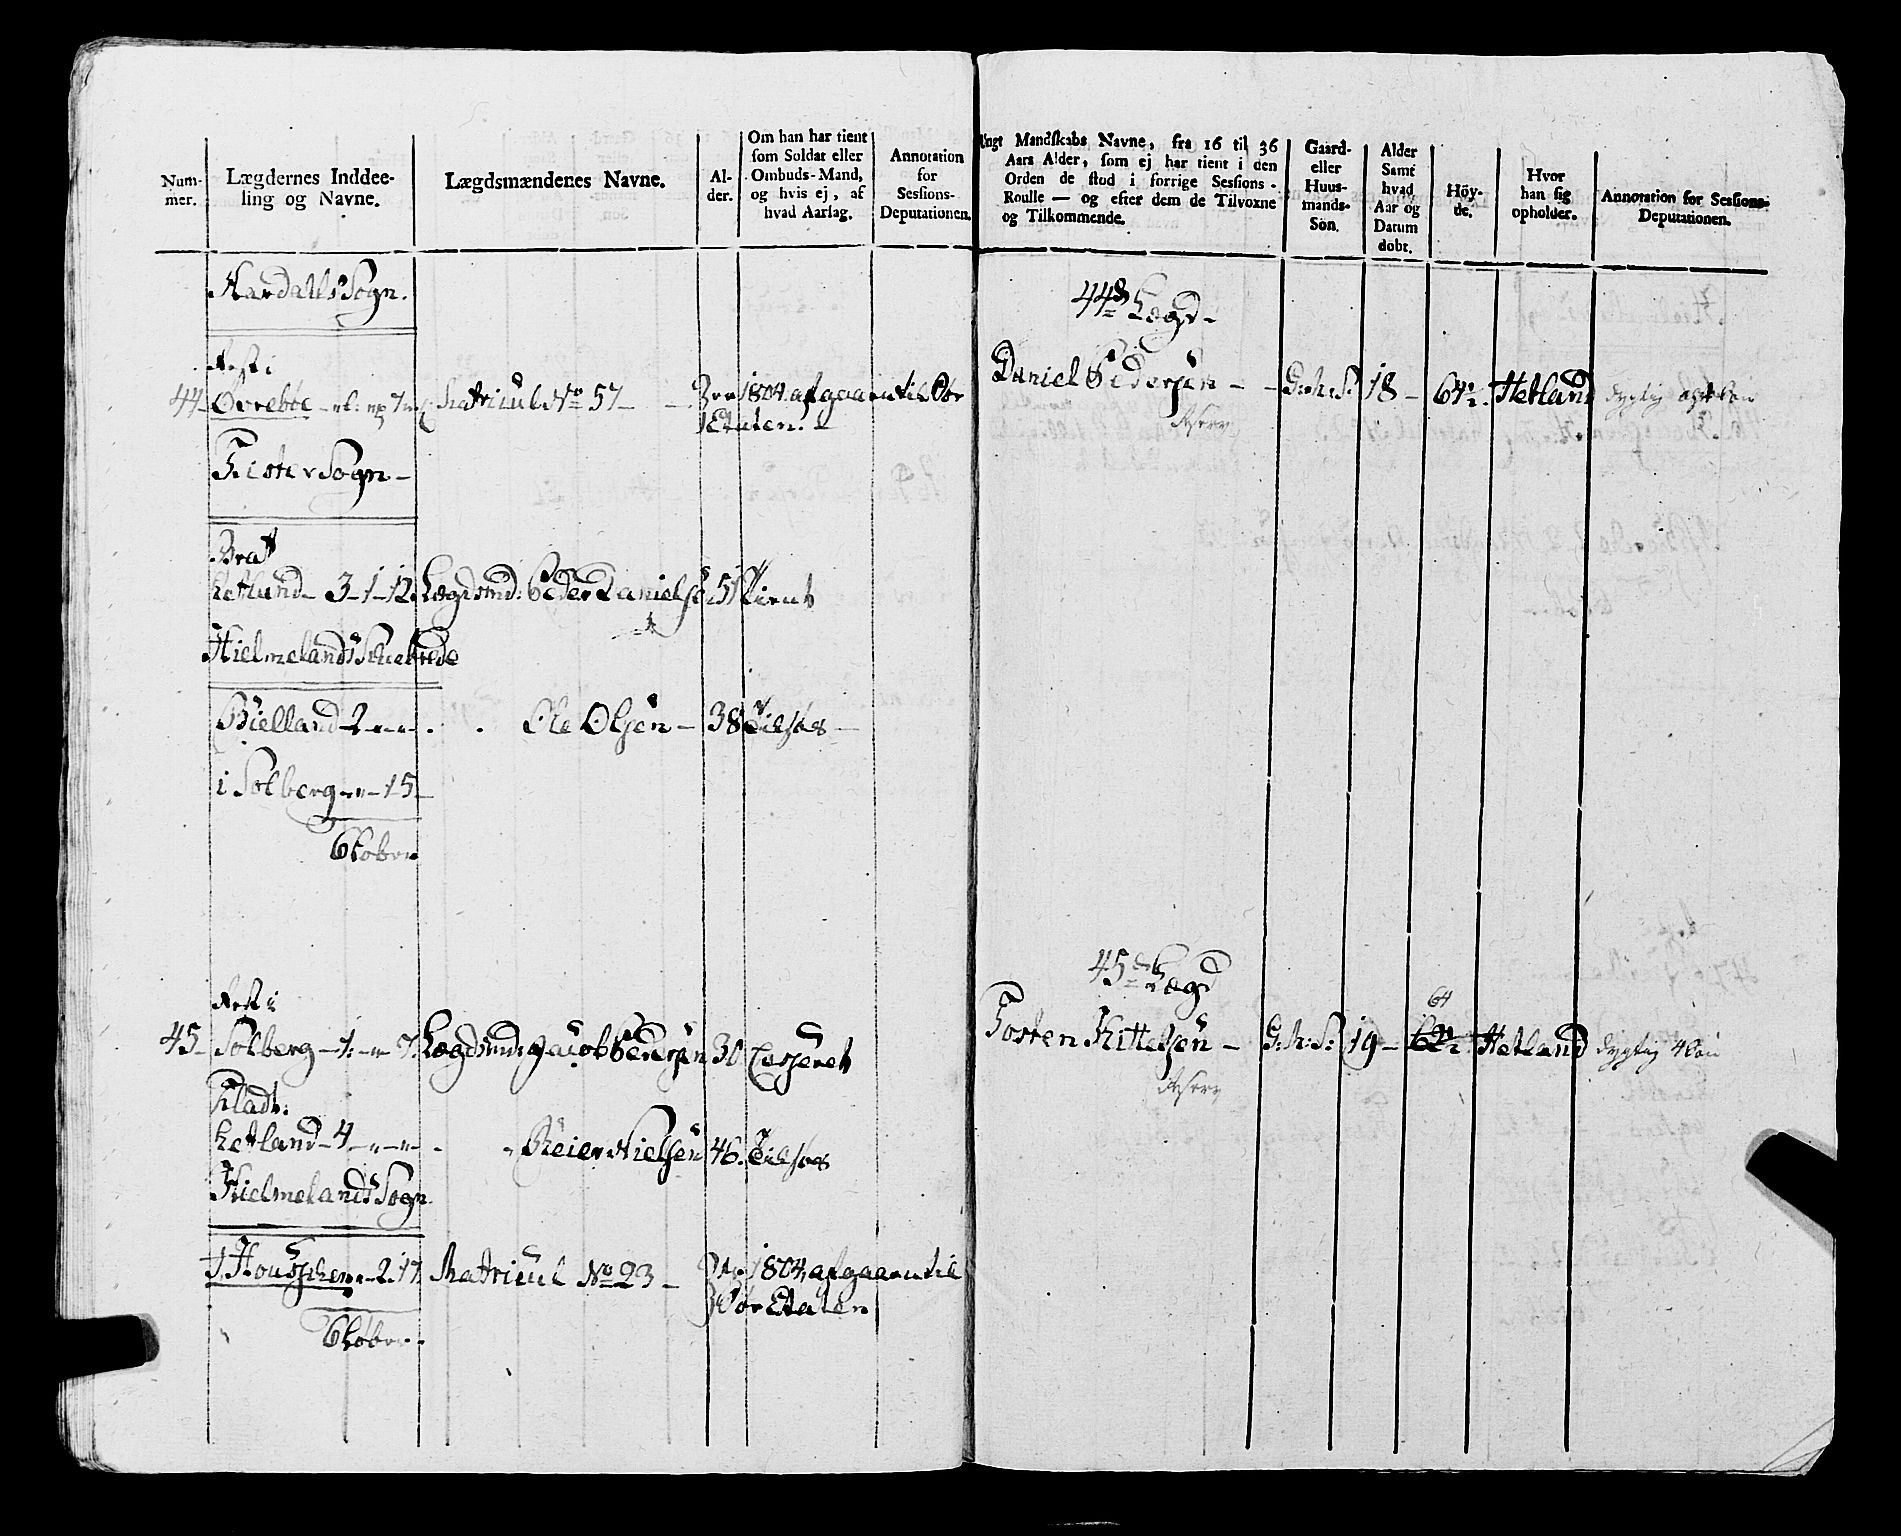 Num-
mer.
Lægdernes Inddee-
ling og Navne.
Lægdsmændenes Navne.
Al-
der.
Om han har tient
som Soldat eller
Ombuds-Mand,
og hvis ej, af
hvad Aarsag.
Annotation
for
Sessions-
Deputationen.
Aardahls Sogn.
Rest i
44 Øvrebøe Matricul No 57 1804 afgaaen til Sør
Etaten.
Fister Sogn
Brat
hetland 3 1 12 Lægdsmd: Peder Daniels: 51 Tient
Hielmelands Skibrede
Bielland 2 Ole Olsen 38 Tilsøes
i Solberg 15
6 Løber
Rest i
45 Solberg 1 Lægdsmd: Jacob Pedersen 30 Casseret
Fladt:
hetland 4 Reier Nielsen 46 Tilsøes
Hielmelands Sogn
2 17 Matricul No 23 1804 afgaaen til
Sør Etaten
6 Løber
Ungt Mandskabs Navne, fra 16 til 36
Aars Alder, som ej har tient i den
Orden de stod i forrige Sessions-
Roulle — og efter dem de Tilvoxne
og Tilkommende.
Gaard-
eller
Huus-
mands-
Søn.
Alder
Samt
hvad
Aar og
Datum
døbt.
Höy-
de.
Hvor
han sig
opholder.
Annotation for Sessions-
Deputationen.
44de Lægd
Daniel Pedersen G:M:S: 18 64½ Hetland dygtig
Reserv
45de Lægd
64
Tosten Kittelsen G:M:S: 19 Hetland dygtig
Reserv